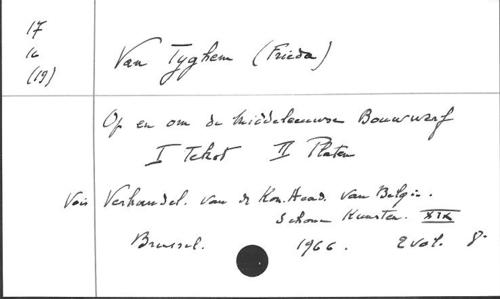 17
16
(19)
Van Tyghem (Frieda)
Op en om de Middeleeuwse Bouwwerf
I Tekst II Platen
Vois Verhandel. van de Kon. Acad. van Belgie.
Schone Kunsten. XIX
Brussel. 1966. 2 vol. 8°